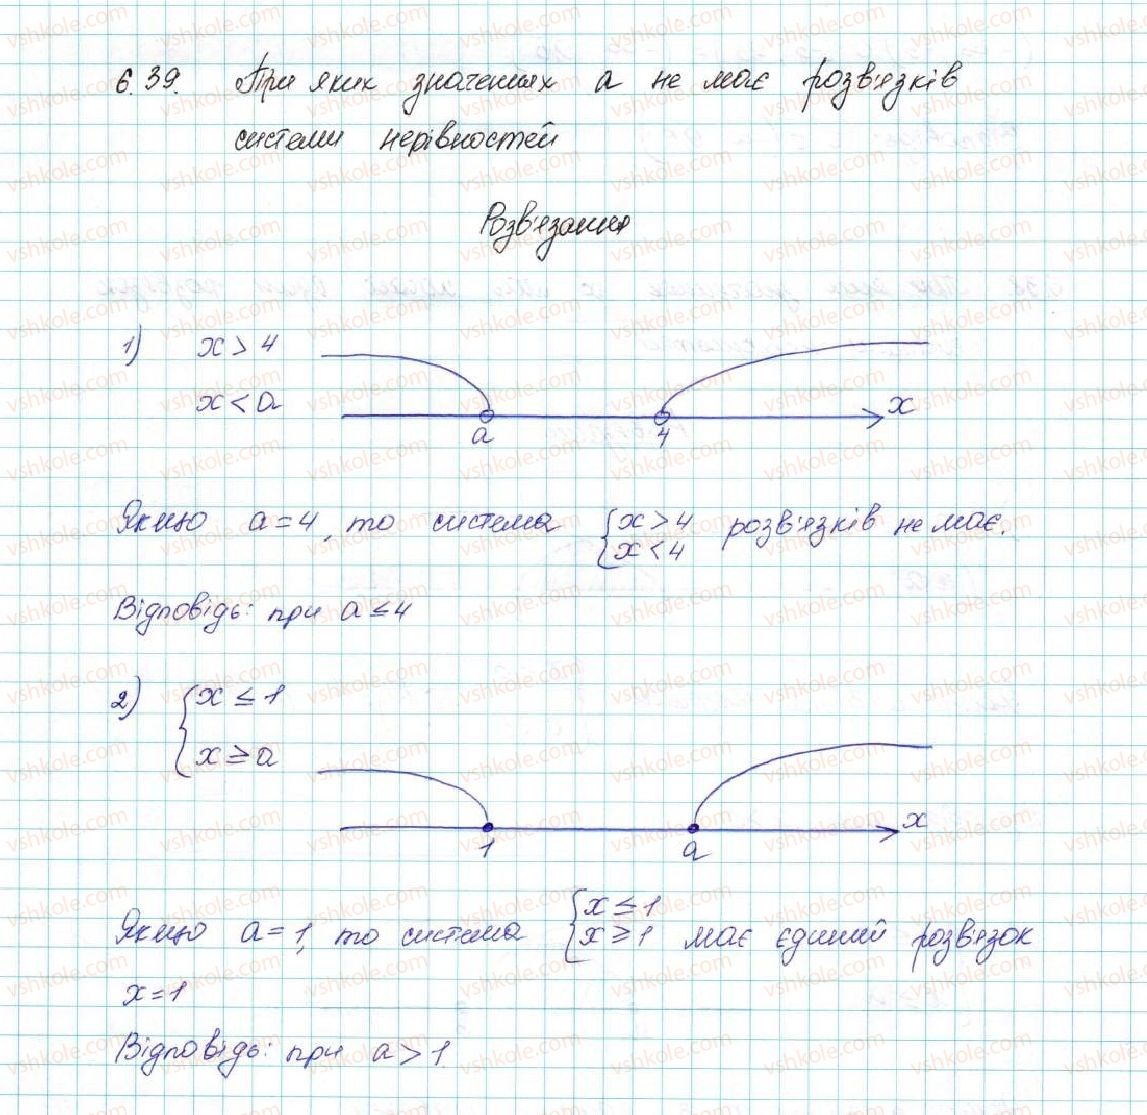 6.39. При яких значеннях a не має розв'язків
системи нерівностей
Розв'язання
1) x > 4
x < a
a 4 x
Якщо a = 4, то система { x > 4 розв'язків не має.
x < 4
Відповідь: при a ≤ 4
2) { x ≤ 1
x ≥ a
1 a x
Якщо a = 1, то система { x ≤ 1
x ≥ 1 має єдиний розв'язок
x = 1
Відповідь: при a > 1